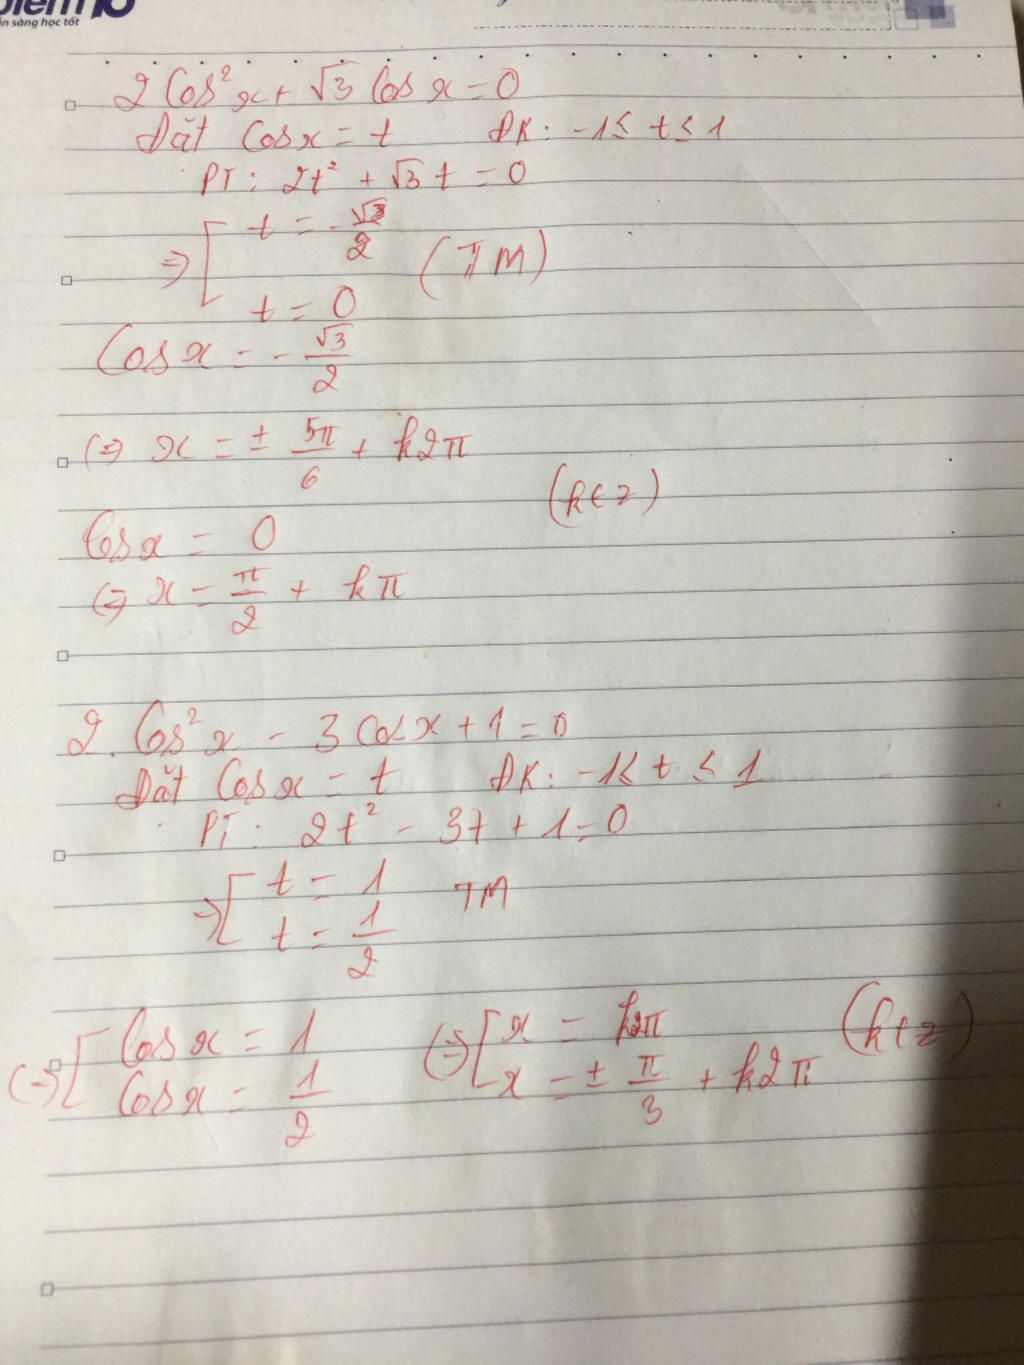 ẵn sàng học tốt
2 Cos²x + √3 Cos x = 0
Đặt Cosx = t ĐK: -1 ≤ t ≤ 1
PT: 2t² + √3 t = 0
⇒ [ t = -√3/2
(TM)
t = 0
Cos x = - √3/2
(⇒ x = ± 5π/6 + k2π
(k∈z)
Cosx = 0
(⇒ x = π/2 + kπ
2. Cos²x - 3 Cosx + 1 = 0
Đặt Cosx = t ĐK: -1 ≤ t ≤ 1
PT: 2t² - 3t + 1 = 0
⇒ [ t = 1 TM
t = 1/2
(⇒ [ Cosx = 1 (⇒ [ x = k2π (k∈z)
Cosx = 1/2 x = ± π/3 + k2π